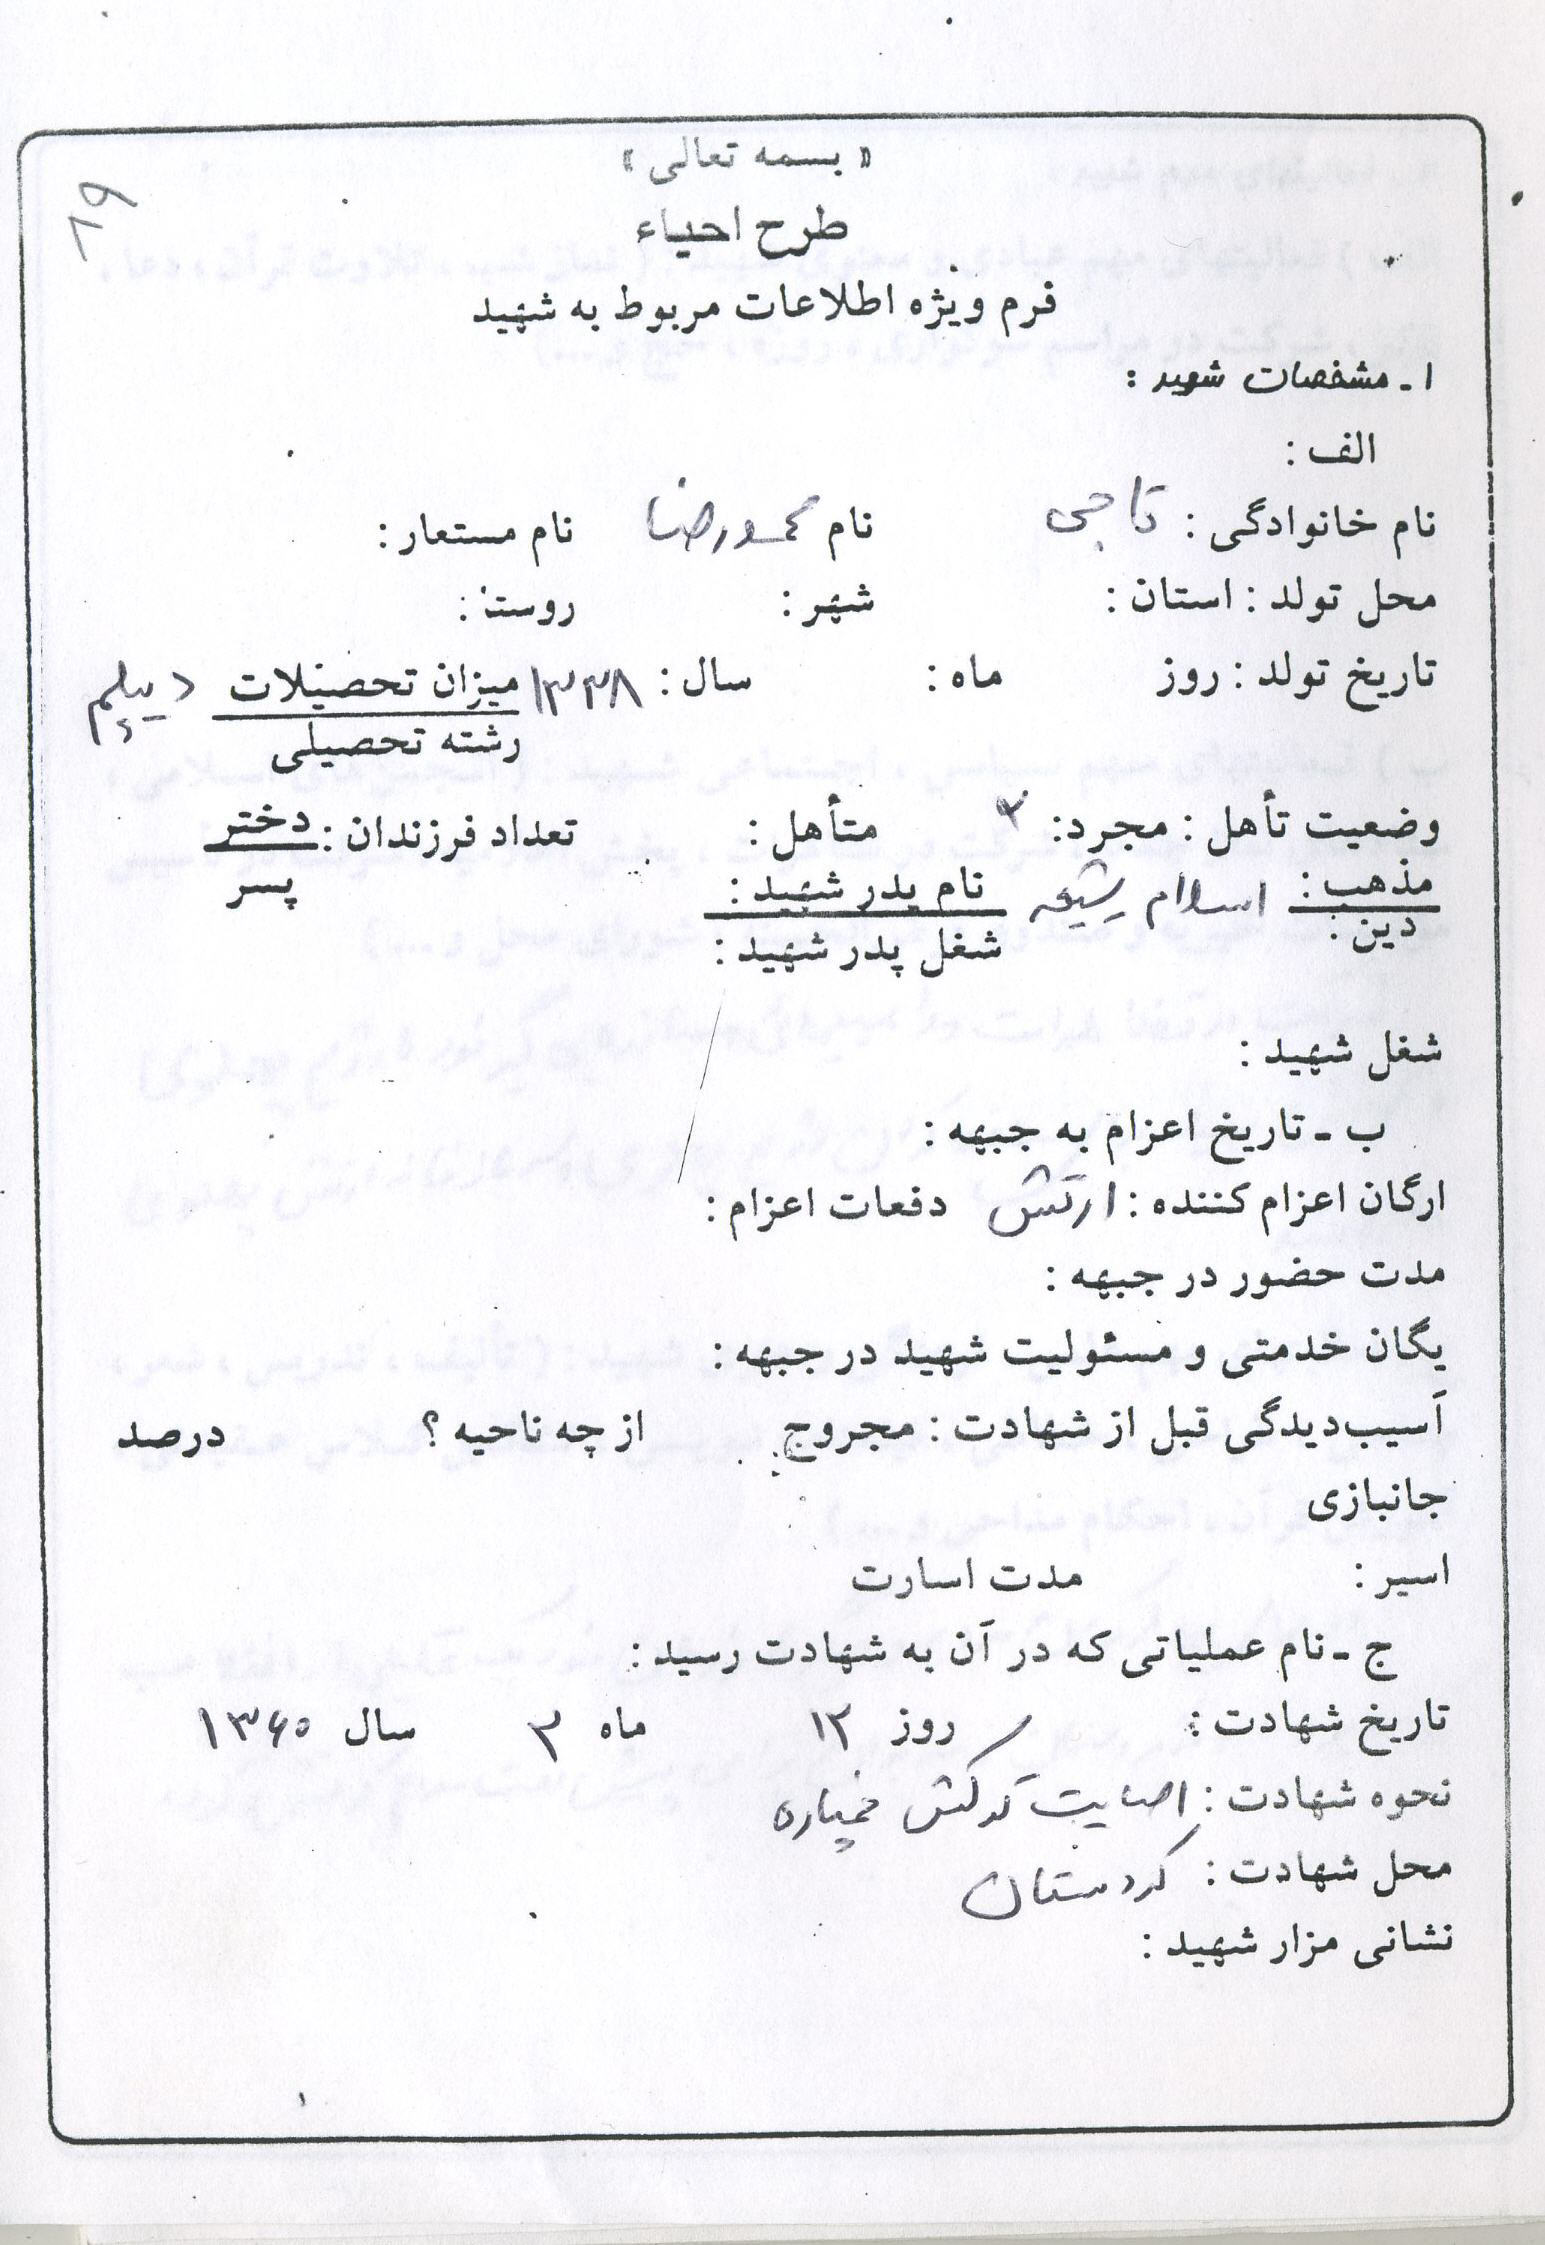 « بسمه تعالی »
۸۹
طرح احیاء
فرم ویژه اطلاعات مربوط به شهید
۱ ـ مشخصات شهید :
الف :
نام خانوادگی : تاجی نام محمودرضا نام مستعار :
محل تولد : استان : شهر : روستا :
تاریخ تولد : روز ماه : سال : ۱۳۳۸ میزان تحصیلات دیپلم
رشته تحصیلی
وضعیت تأهل : مجرد : متأهل : تعداد فرزندان : دختر
پسر
مذهب : اسلام شیعه نام پدر شهید :
دین : شغل پدر شهید :
شغل شهید :
ب ـ تاریخ اعزام به جبهه :
ارگان اعزام کننده : ارتش دفعات اعزام :
مدت حضور در جبهه :
یگان خدمتی و مسئولیت شهید در جبهه :
آسیب‌دیدگی قبل از شهادت : مجروح از چه ناحیه ؟ درصد
جانبازی
اسیر : مدت اسارت
ج ـ نام عملیاتی که در آن به شهادت رسید :
تاریخ شهادت : روز ۱۲ ماه ۳ سال ۱۳۶۰
نحوه شهادت : اصابت ترکش خمپاره
محل شهادت : کردستان
نشانی مزار شهید :
۱